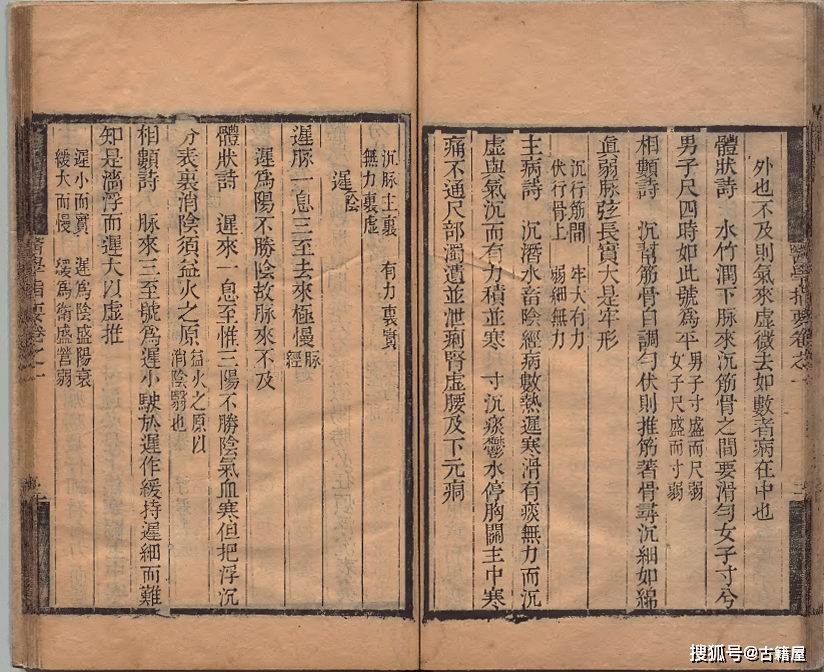 外也不及則氣來虛微去如數者病在中也
體狀詩　水竹潤下脉來沉筋骨之間要滑勻女子寸兮
男子尺四時如此號為平
男子寸盛而尺弱
女子尺盛而寸弱
相類詩　沉幫筋骨自調勻伏則推筋著骨尋沉細如綿
眞弱脉弦長實大是牢形
沉行筋間　牢大有力
伏行骨上　弱細無力
主病詩　沉潛水畜陰經病數熱遲寒滑有痰無力而沉
虛與氣沉而有力積並寒　寸沉痰鬱水停胸關主中寒
痛不通尺部濁遺並泄痢腎虛腰及下元痌
醫學指要卷之一
沉脉主裏　有力裏實
無力裏虛
遲
陰
遲脉一息三至去來極慢
脉
經
遲為陽不勝陰故脉來不及
體狀詩　遲來一息至惟三陽不勝陰氣血寒但把浮沉
分表裏消陰須益火之原
益火之原以
消陰翳也
相類詩　脉來三至號為遲小駛於遲作緩持遲細而難
知是濇浮而遲大以虛推
遲小而實　遲為陰盛陽衰
緩大而慢　緩為衛盛營弱
醫學指要卷之一
搜狐号@古籍屋